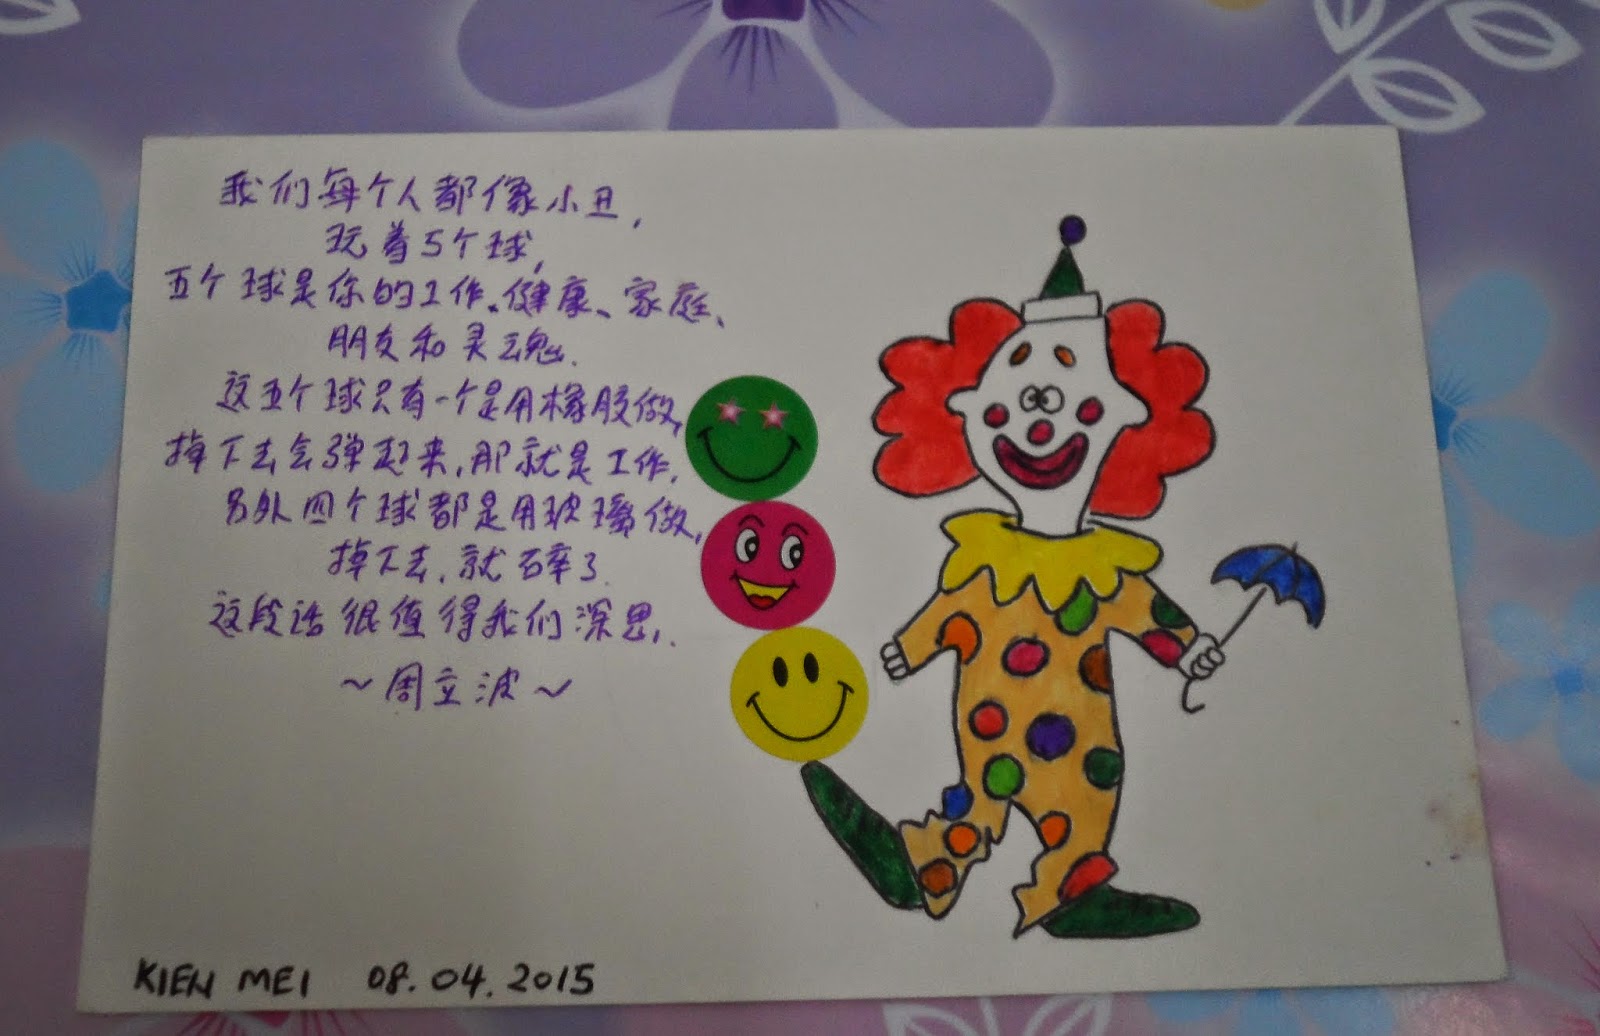 我们每个人都像小丑,
玩着5个球,
五个球是你的工作、健康、家庭、
朋友和灵魂.
这五个球只有一个是用橡胶做,
掉下去会弹起来,那就是工作.
另外四个球都是用玻璃做,
掉下去,就碎了.
这段话很值得我们深思,.
~周立波~
KIEN MEI 08.04.2015